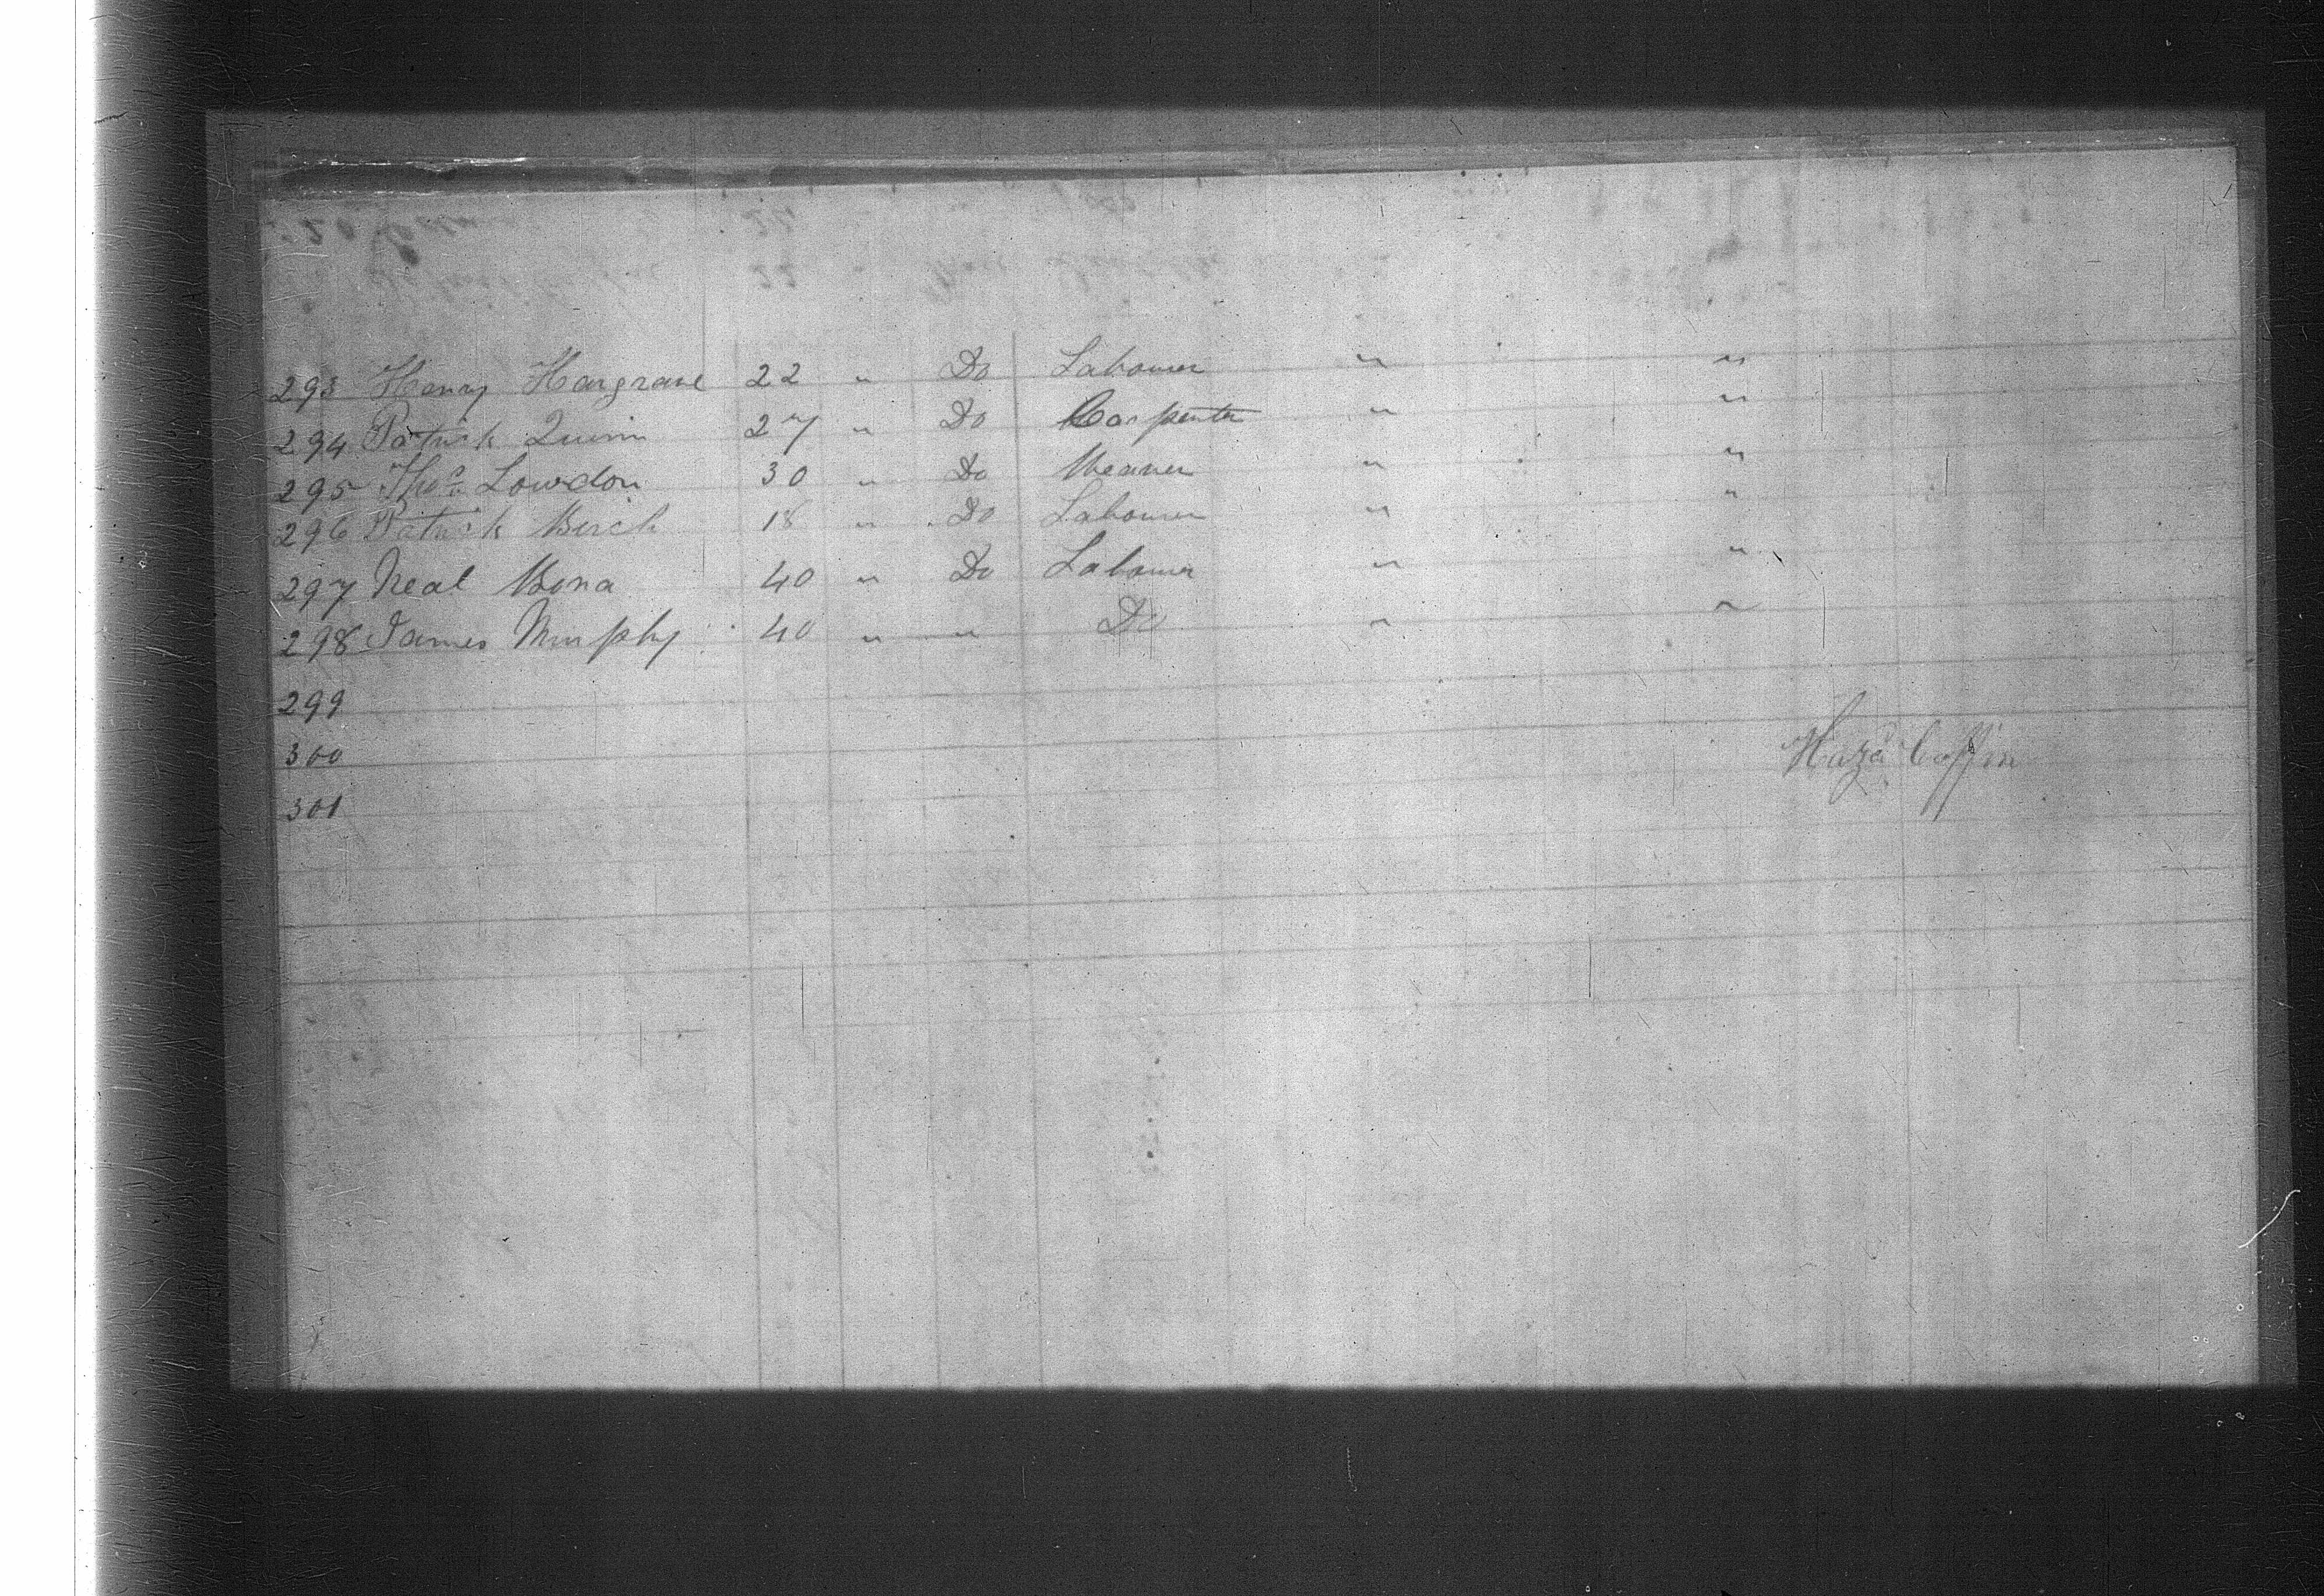 293 Henry Hargrave 22 " Do Labourer " "
294 Patrick Quinn 27 " Do Carpenter " "
295 Thos Lowdon 30 " Do Weaver " "
296 Patrick Birch 18 " Do Labourer " "
297 Neal Bona 40 " Do Labourer " "
298 James Murphy 40 " " Do " "
299
300 Coffin
301